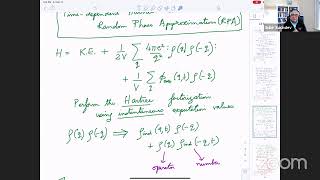 Time-dependent Hartree
Random Phase Approximation (RPA)
H = K.E. + 1/2V Σ_q 4πe²/q² ρ(q) ρ(-q)
+ 1/V Σ_q φ_ext (q,t) ρ(-q)
Perform the Hartree factorization
using instantaneous expectation values
ρ(q) ρ(-q) ⟹ ρ_ind (q,t) ρ(-q)
+ ρ(q) ρ_ind (-q,t)
operator number
zoom